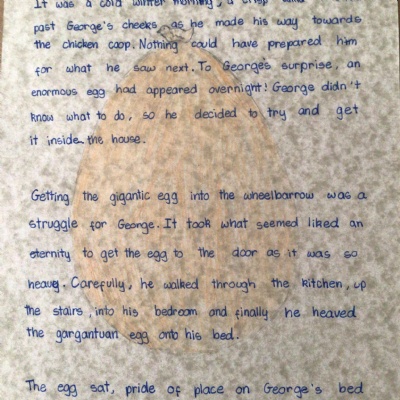 It was a cold winter morning, a crisp
past George's cheeks as he made his way towards
the chicken coop. Nothing could have prepared him
for what he saw next. To Georges surprise, an
enormous egg had appeared overnight! George didn't
know what to do, so he decided to try and get
it inside the house.
Getting the gigantic egg into the wheelbarrow was a
struggle for George. It took what seemed liked an
eternity to get the egg to the door as it was so
heavy. Carefully, he walked through the kitchen, up
the stairs, into his bedroom and finally he heaved
the gargantuan egg onto his bed.
The egg sat, pride of place on George's bed